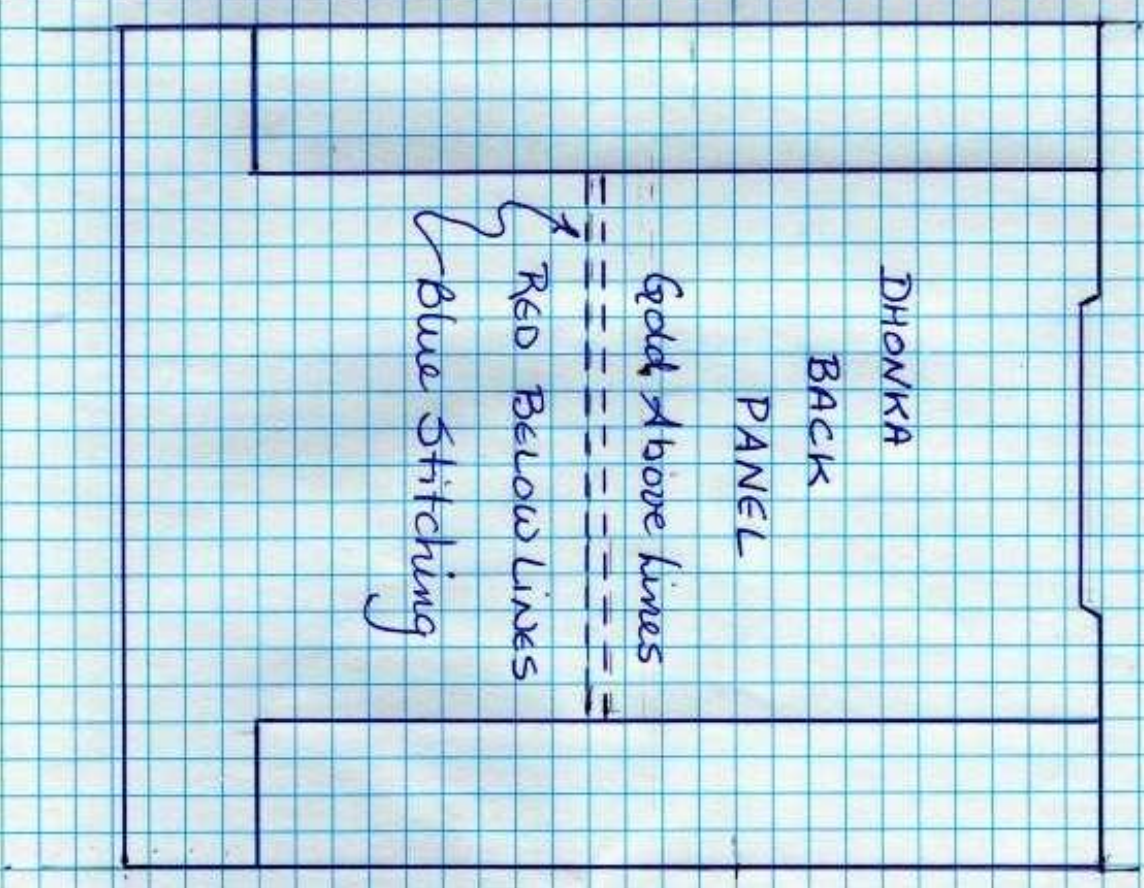 DHONKA
BACK
PANEL
Gold Above Lines
RED BELOW LINES
Blue Stitching